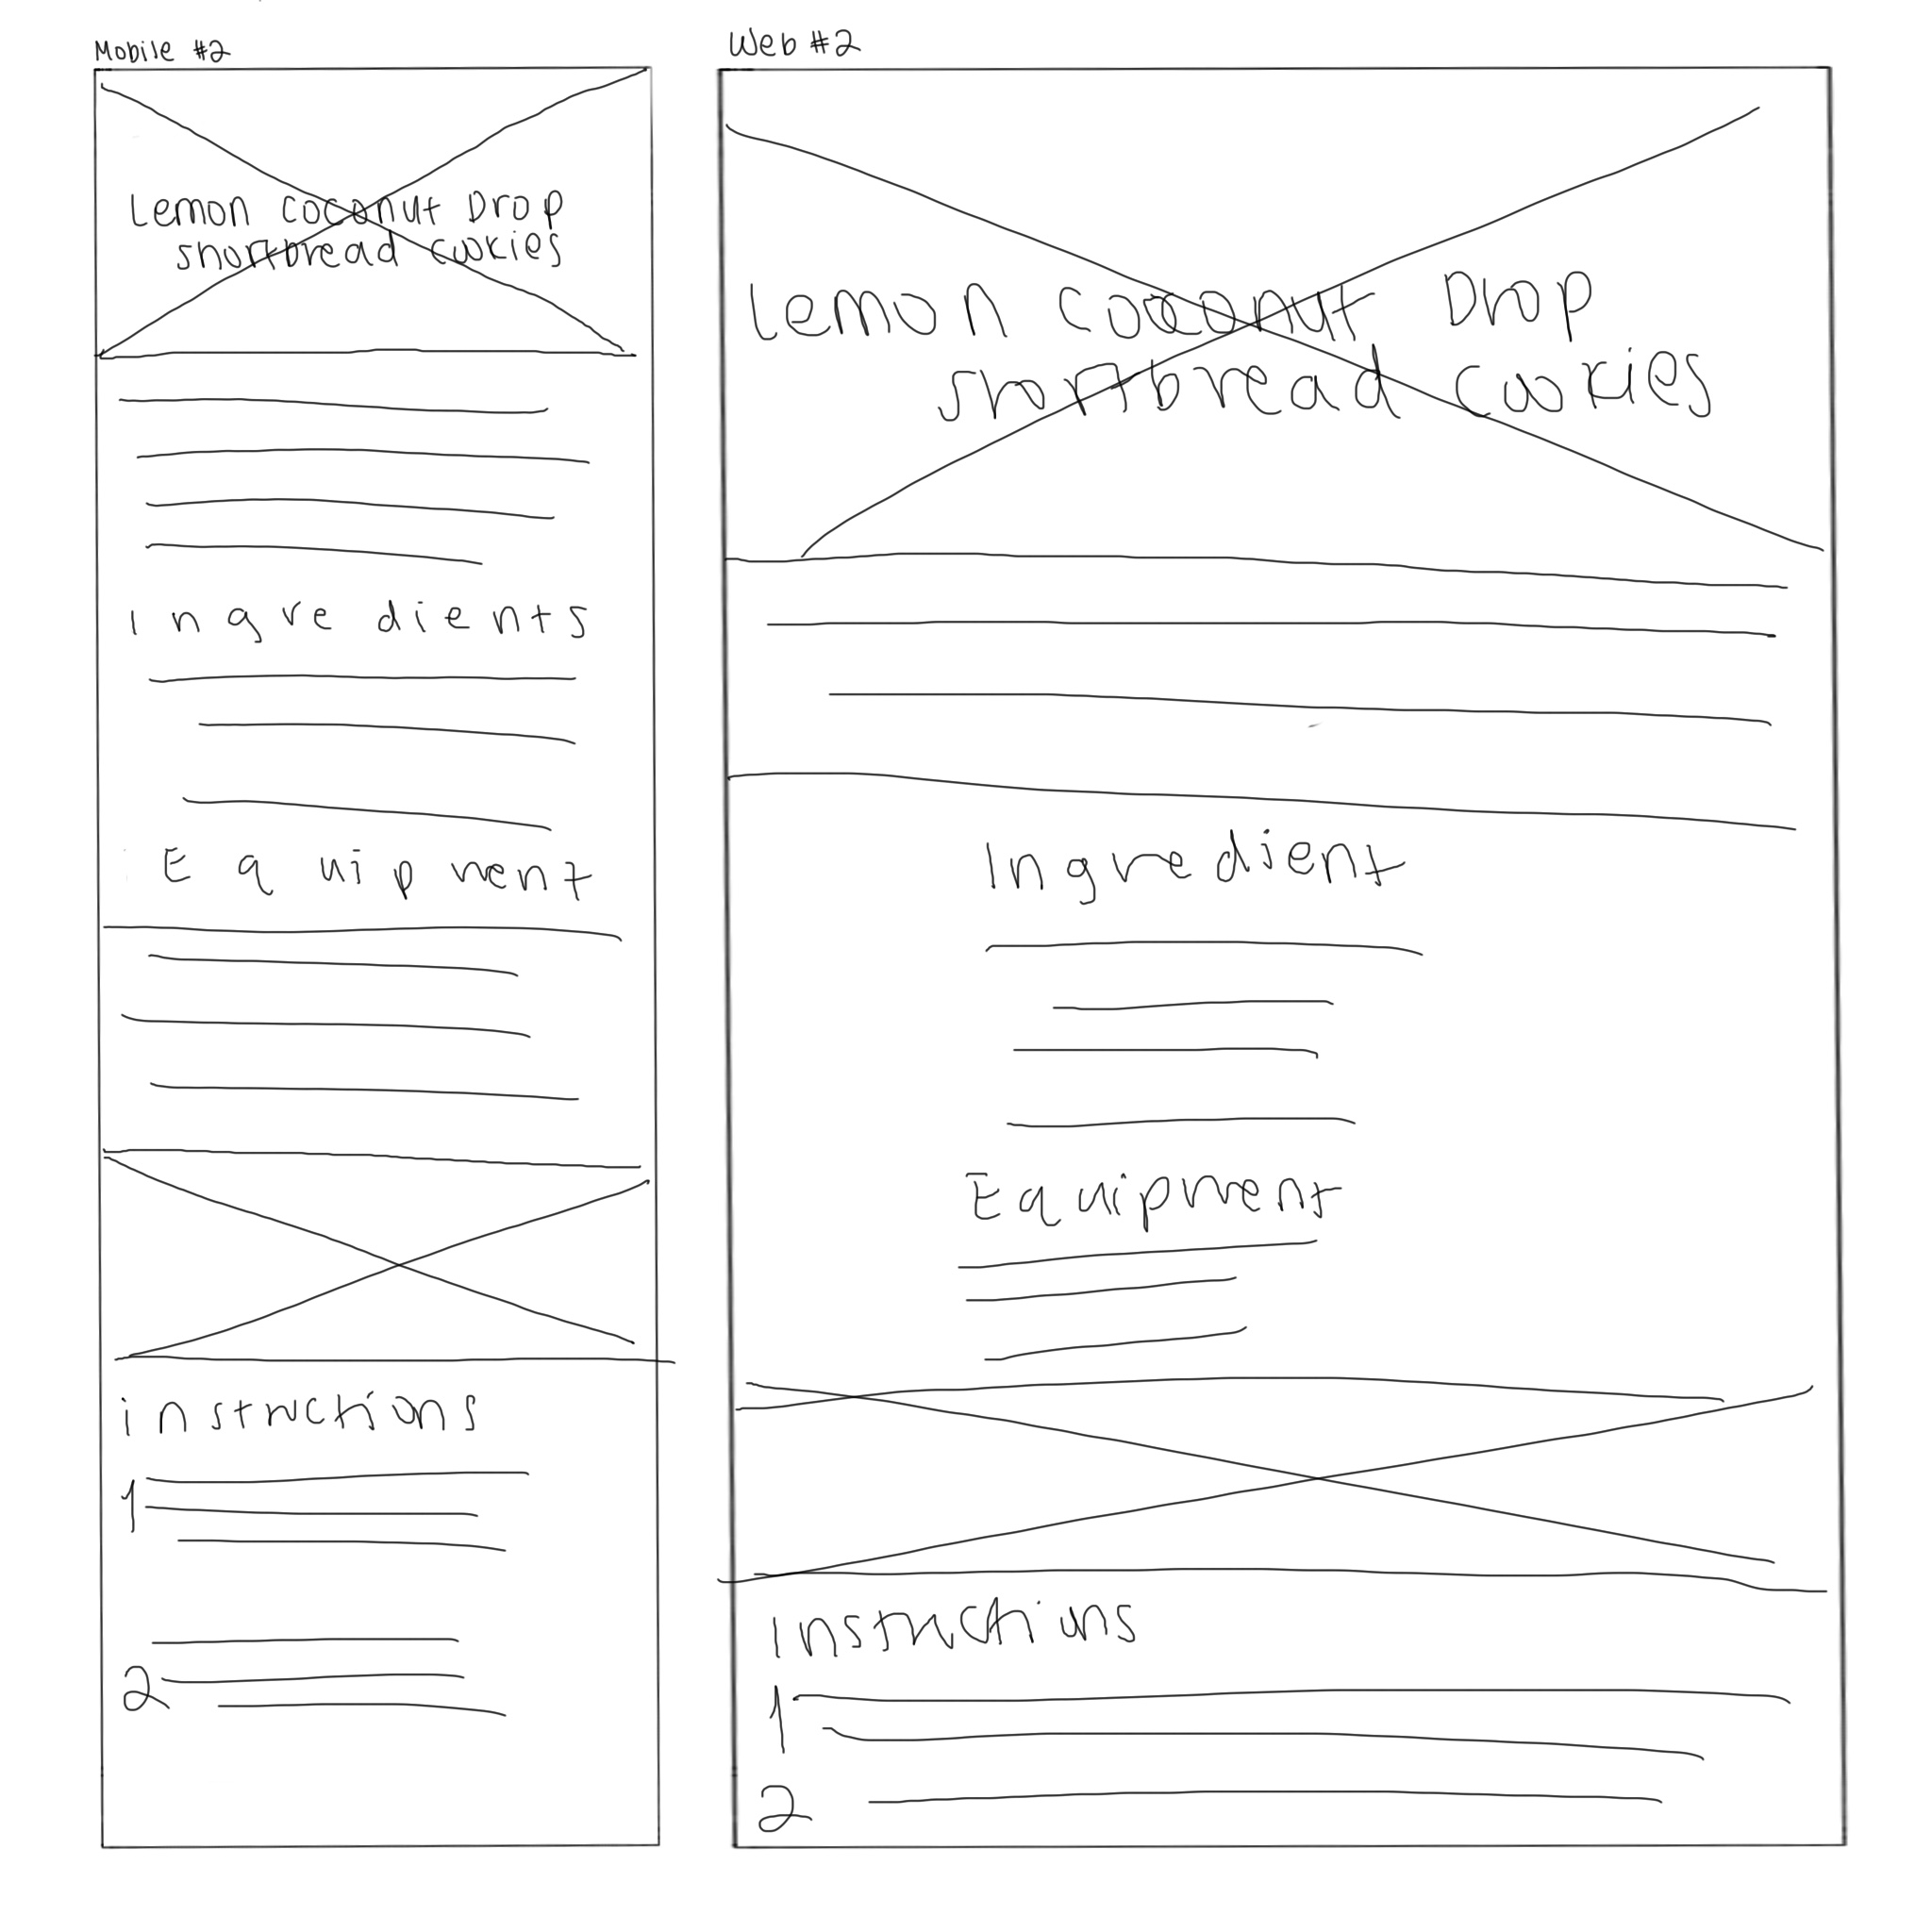 Mobile #2
Lemon coconut Drop
shortbread cookies
Ingredients
Equipment
instructions
1
2
Web #2
Lemon coconut Drop
shortbread cookies
Ingredient
Equipment
Instructions
1
2